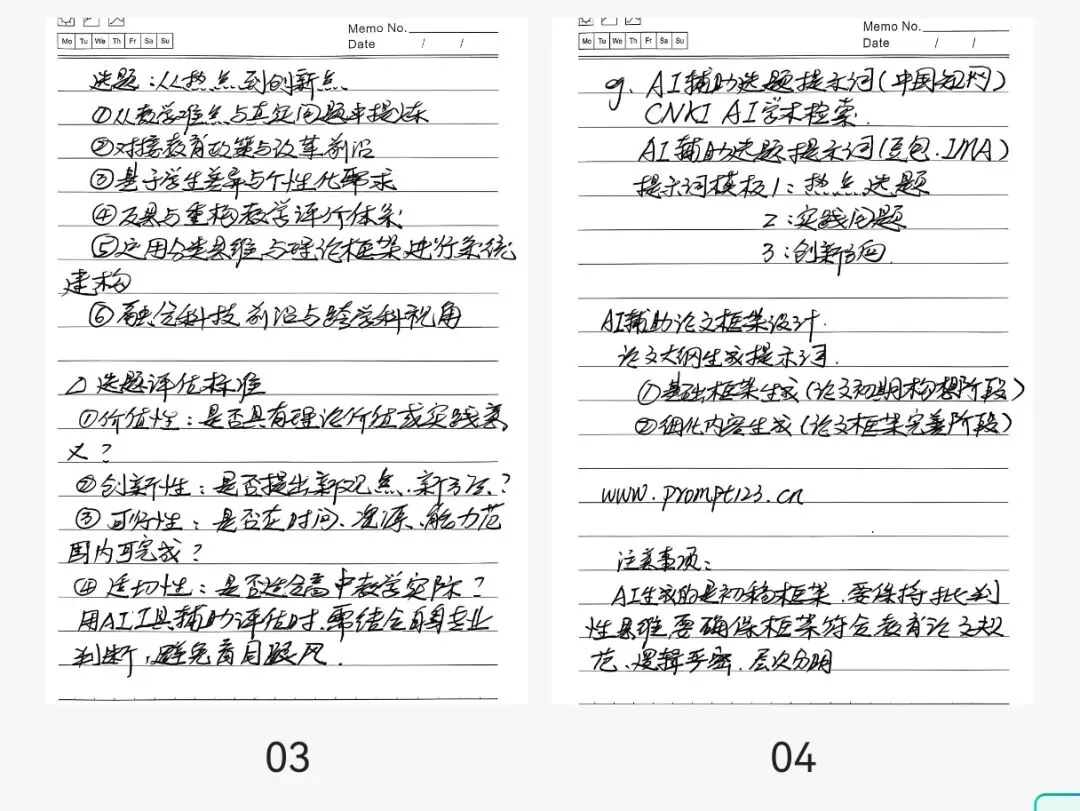 Memo No.
Mo Tu We Th Fr Sa Su
Date / /
选题：从热点到创新点
①从教学难点与真实问题中提炼
②对接教育政策与改革前沿
③基于学生差异与个性化需求
④反思与重构教学评价体系
⑤应用分类思维与理论框架进行系统
建构
⑥融合科技前沿与跨学科视角
△选题评估标准
①价值性：是否具有理论价值或实践意
义？
②创新性：是否提出新观点、新方法？
③可行性：是否在时间、资源、能力范
围内可完成？
④适切性：是否适合高中教学实际？
用AI工具辅助评估时，需结合自身专业
判断，避免盲目跟风.
03
Memo No.
Mo Tu We Th Fr Sa Su
Date / /
g. AI辅助选题提示词（中国知网）
CNKI AI学术检索.
AI辅助选题提示词（豆包.IMA）
提示词模板1：热点选题
2：实践问题
3：创新方向.
AI辅助论文框架设计.
论文大纲生成提示词.
①基础框架生成（论文初期构想阶段）
②细化内容生成（论文框架完善阶段）
www.prompt123.cn
注意事项：
AI生成的是初稿框架，要保持批判
性思维要确保框架符合教育论文规
范、逻辑严密、层次分明
04